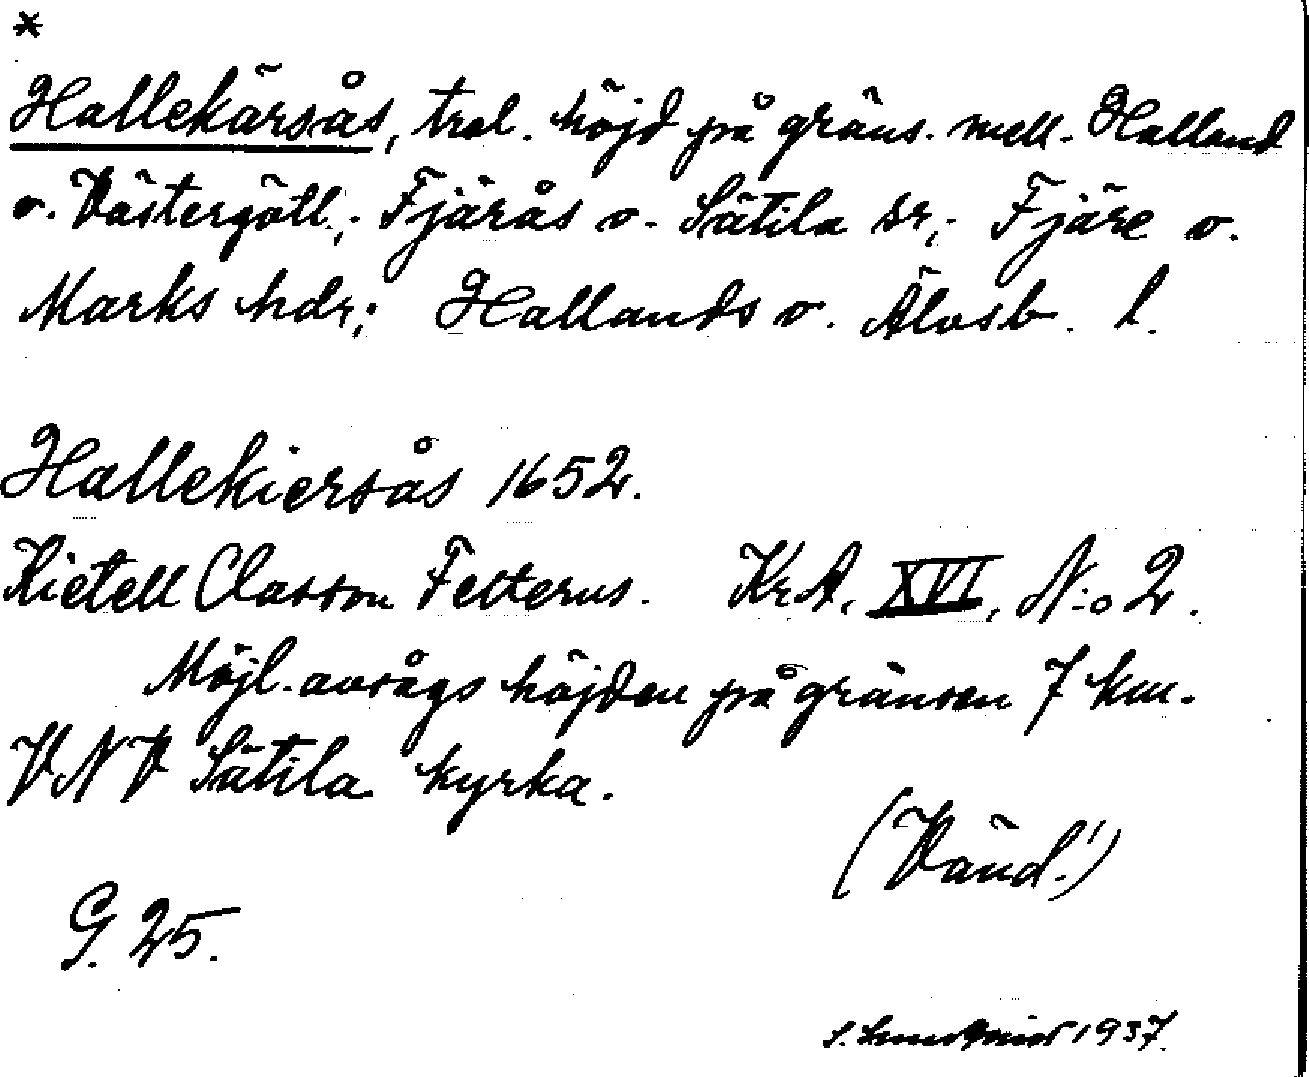 *
Hallekärsås, trol. höjd på gräns. mell. Halland
o. Västergötl.; Fjärås o. Sätila sr; Fjäre o.
Marks hdr; Hallands o. Älvsb. l.
Hallekiersås 1652.
Kietell Classon Felterus. Kr.A. XVI, N:o 2.
Möjl. avsågs höjden på gränsen 7 km.
VNV Sätila kyrka.
(Vänd!)
G. 25.
S. 1937.